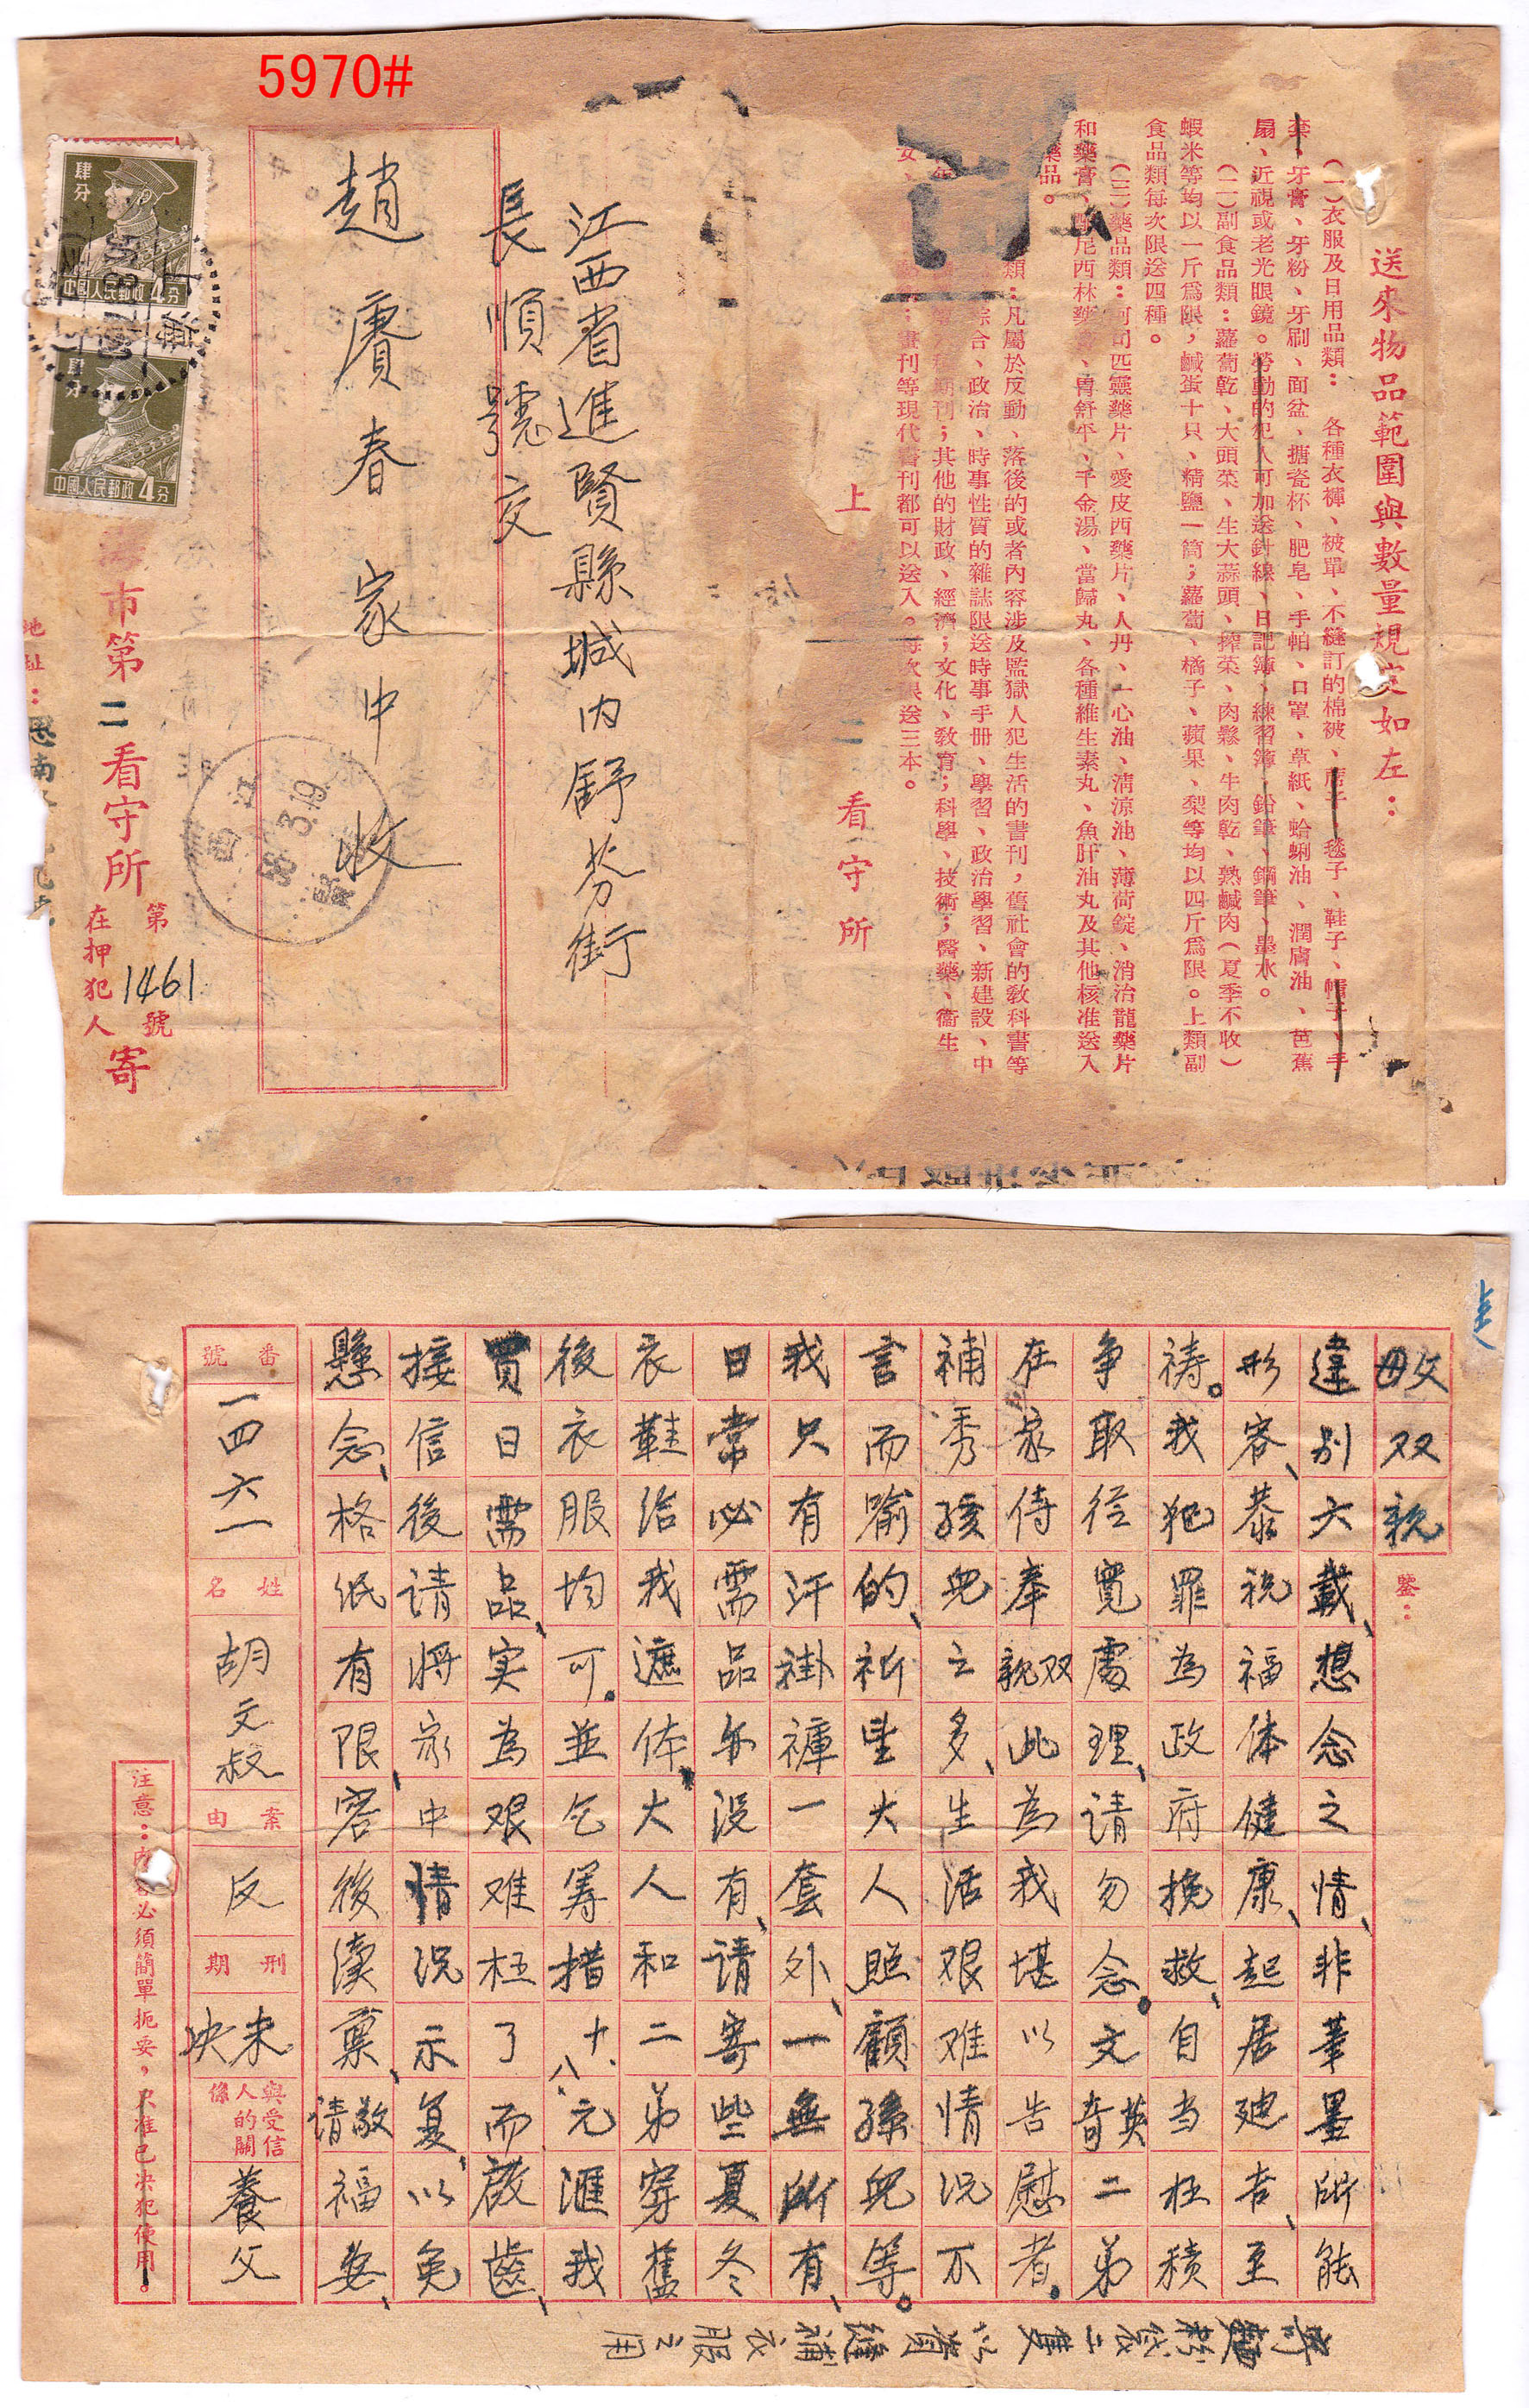 5970#
送來物品範圍與數量規定如左：
（一）衣服及日用品類：各種衣褲、被單、不縫訂的棉被、席子、毯子、鞋子、帽子、手
套、牙膏、牙粉、牙刷、面盆、搪瓷杯、肥皂、手帕、口罩、草紙、蛤蜊油、潤膚油、芭蕉
扇、近視或老光眼鏡。勞動的犯人可加送針線、日記簿、練習簿、鉛筆、鋼筆、墨水。
（二）副食品類：蘿蔔乾、大頭菜、生大蒜頭、搾菜、肉鬆、牛肉乾、熟鹹肉（夏季不收）
蝦米等均以一斤爲限，鹹蛋十只、精鹽一筒；蘿蔔、橘子、蘋果、梨等均以四斤爲限。上類副
食品類每次限送四種。
（三）藥品類：阿司匹靈藥片、愛皮西藥片、人丹、一心油、清涼油、薄荷錠、消治龍藥片
和藥膏、尼西林藥膏、胃舒平、千金湯、當歸丸、各種維生素丸、魚肝油丸及其他核准送入
藥品。
類：凡屬於反動、落後的或者內容涉及監獄人犯生活的書刊，舊社會的教科書等
綜合、政治、時事性質的雜誌限送時事手册、學習、政治學習、新建設、中
期刊；其他的財政、經濟；文化、教育；科學、技術；醫藥、衞生
畫刊等現代書刊都可以送入。每次限送三本。
上 二 看守所
江西省進賢縣城内舒芬街
長順號交
趙賡春家中收
肆分
中國人民郵政4分
肆分
中國人民郵政4分
上海
江西
58.3.19
市第二看守所
第1461號
在押犯人
寄
地址：思南
父母双親鑒：
違别六載、想念之情、非華墨所能
形容、恭祝福体健康、起居廸吉、至
祷。我犯罪為政府挽救、自当枉積
争取從寬處理、请勿念。文英奇二弟
在家侍奉双親此為我堪以告慰者。
補秀孩兒之多、生活艰难情况不
言而喻的、祈望大人照顧孫兒等。
我只有汗褂褲一套外、一無所有、
日常必需品亦没有、请寄些夏冬
衣鞋给我遮体、大人和二弟穿舊
後衣服均可。並乞筹措十、八、元滙我
買日需品、实為艰难枉了而啟齒、
接信後请将家中情况示复、以免
懸念、格纸有限、容後續稟、敬请福安、
番號
一四六一
姓名
胡文叔
案由
反
刑期
未决
與受信人的關係
養父
注意：内容必須簡單扼要，只准已决犯使用。
袋二隻以資縫補衣服之用